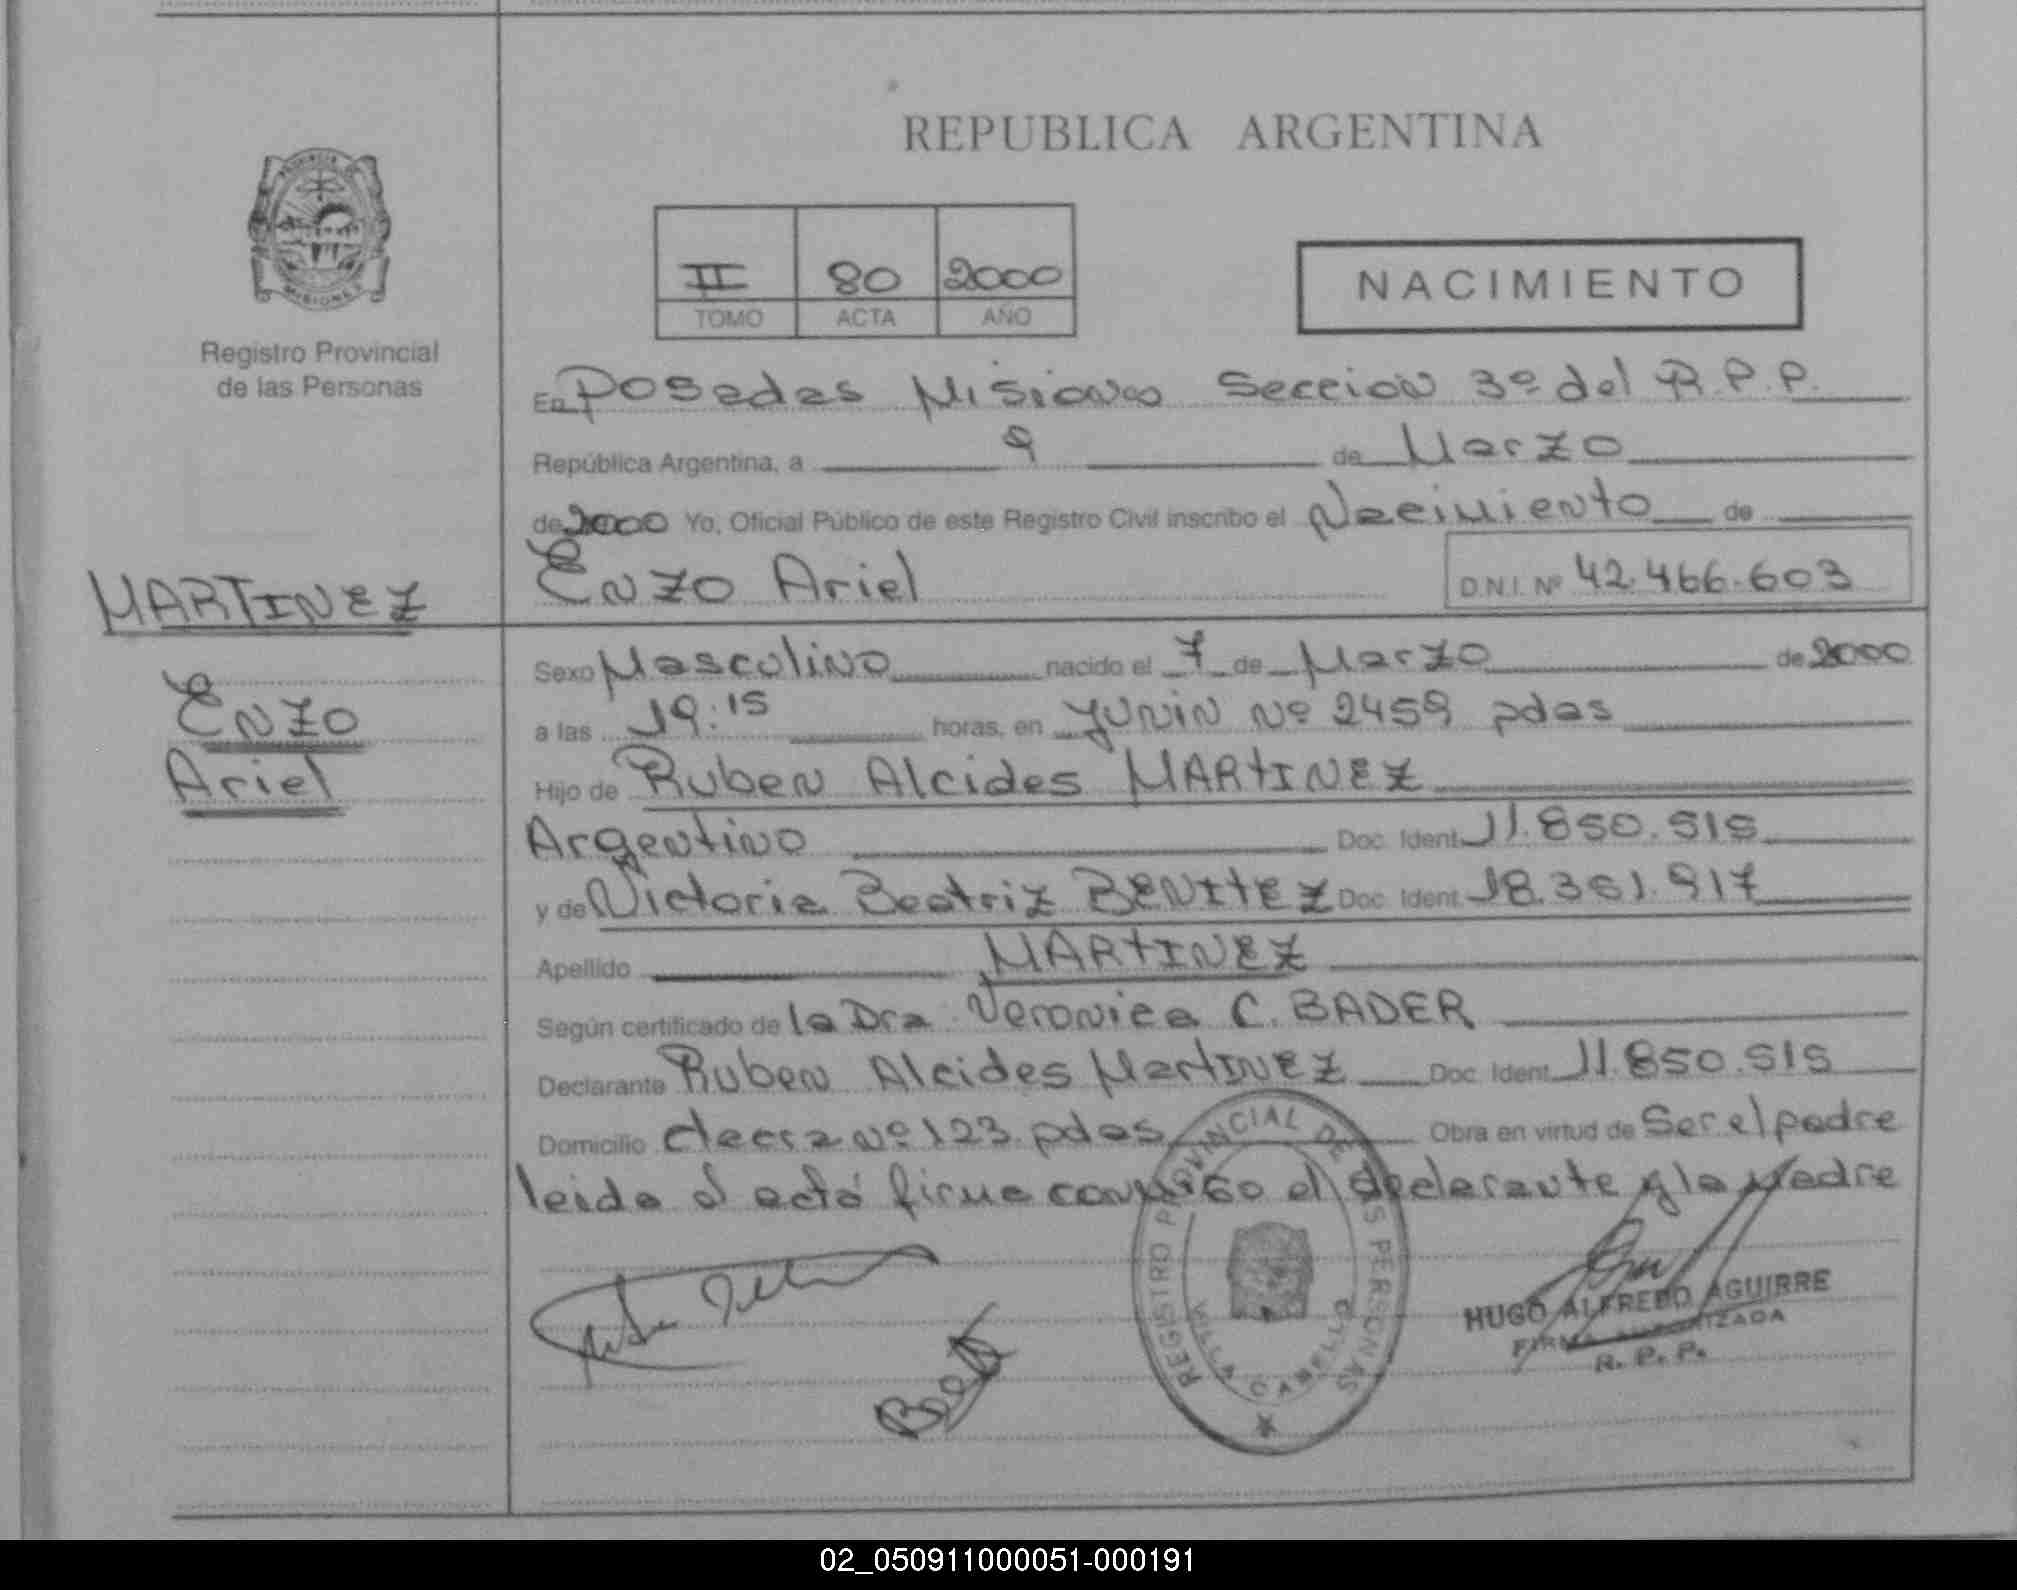 REPUBLICA ARGENTINA
PROVINCIA
MISIONES
Registro Provincial
de las Personas
II 80 2000
TOMO ACTA AÑO
NACIMIENTO
En Posadas Misiones Seccion 3º del R.P.P.
República Argentina, a 9 de Marzo
de 2000 Yo, Oficial Público de este Registro Civil inscribo el Nacimiento de
Enzo Ariel D.N.I. Nº 42.466.603
MARTINEZ
Enzo
Ariel
Sexo Masculino nacido el 7 de Marzo de 2000
a las 19:15 horas, en Junin Nº 2459 pdas
Hijo de Ruben Alcides MARTINEZ
Argentino Doc. Ident. 11.850.515
y de Victoria Beatriz BENITEZ Doc. Ident. 18.361.917
Apellido MARTINEZ
Según certificado de la Dra Veronica C. BADER
Declarante Ruben Alcides MartINEZ Doc. Ident. 11.850.515
Domicilio chacra Nº 123 pdas Obra en virtud de Ser el padre
leida el acta firma conmigo el declarante y la Madre
REGISTRO PROVINCIAL DE LAS PERSONAS
VILLA CABELLO
HUGO ALFREDO AGUIRRE
FIRMA AUTORIZADA
R. P. P.
02_050911000051-000191